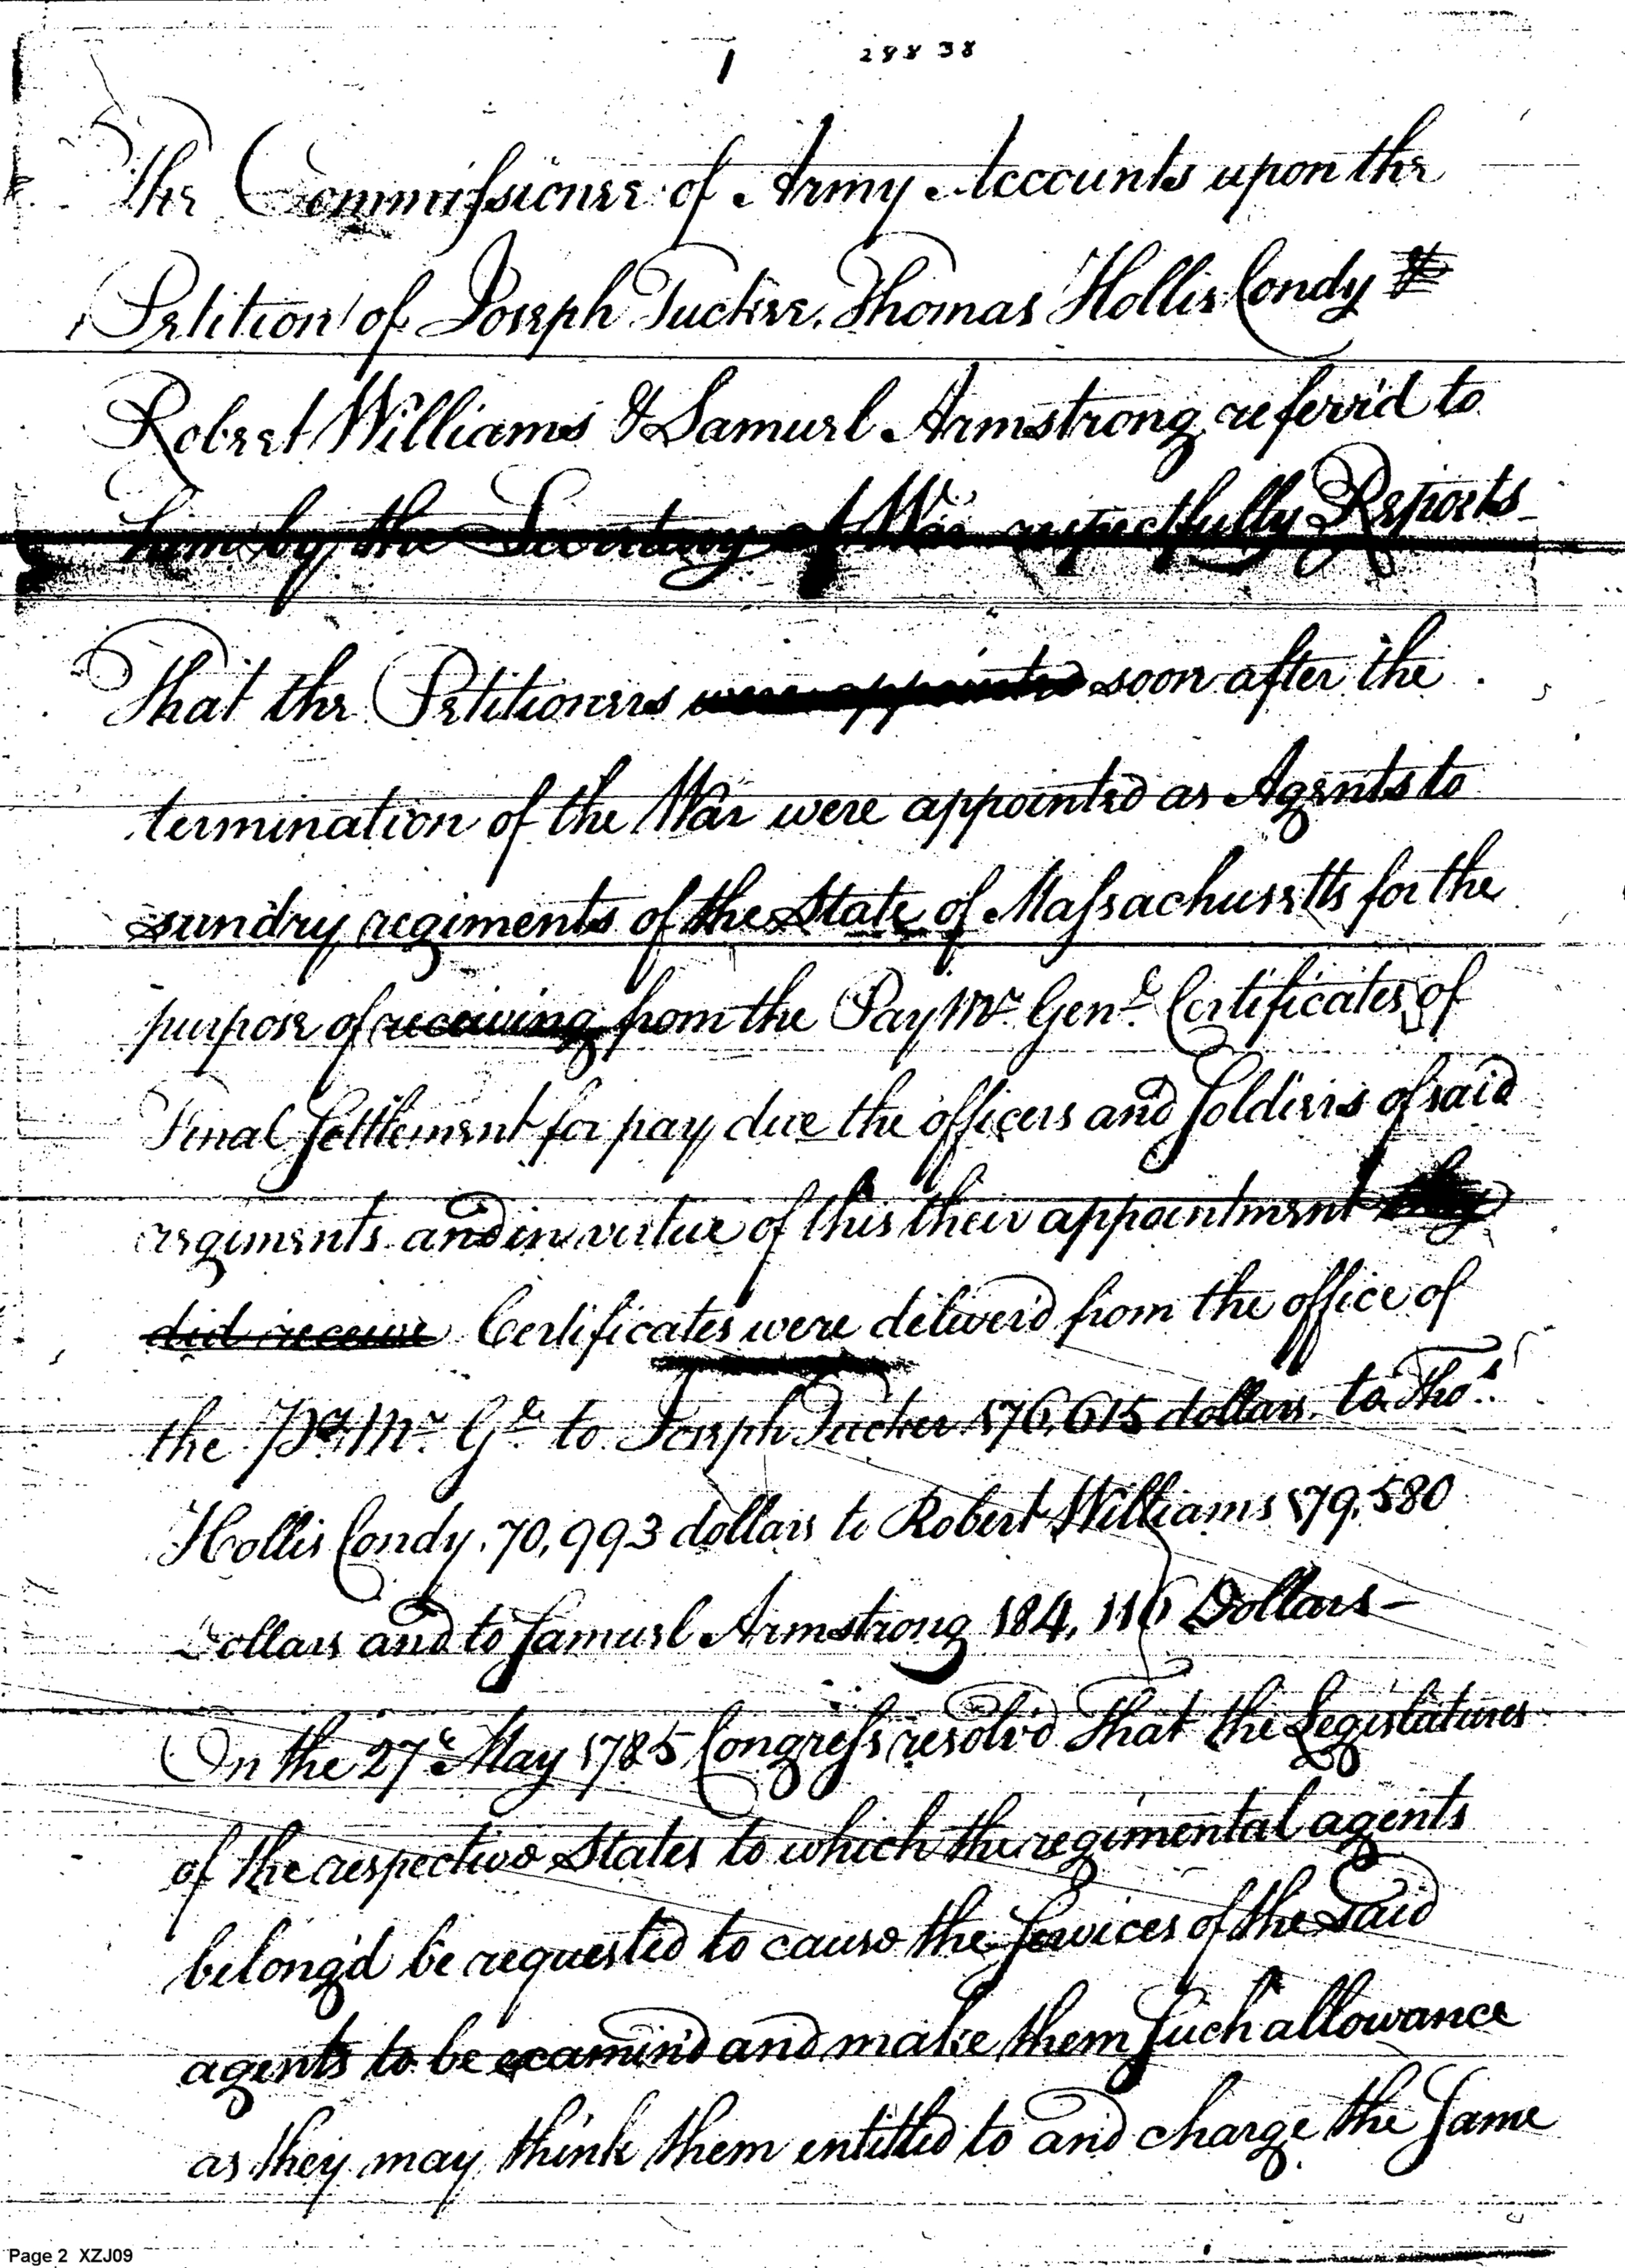 1 28838
The Commissioner of Army Accounts upon the
Petition of Joseph Tucker, Thomas Hollis Condy &
Robert Williams & Samuel Armstrong referr'd to
him by the Secretary of War respectfully Reports
That the Petitioners were appointed soon after the
termination of the War were appointed as Agents to
sundry regiments of the State of Massachusetts for the
purpose of receiving from the Pay Mr. Genl. Certificates of
Final Settlement for pay due the officers and Soldiers of said
regiments and in virtue of this their appointment they
did receive Certificates were deliver'd from the office of
the PayMr. Gl. to Joseph Tucker 176,615 dollars. to Thos.
Hollis Condy. 70,993 dollars to Robert Williams 179,580
Dollars and to Samuel Armstrong 184,116 Dollars—
On the 27th May 1785 Congress resolv'd that the Legislatures
of the respective States to which the regimental agents
belong'd be requested to cause the Services of the said
agents to be examin'd and make them Such allowance
as they may think them entitled to and charge the Same
Page 2 XZJ09